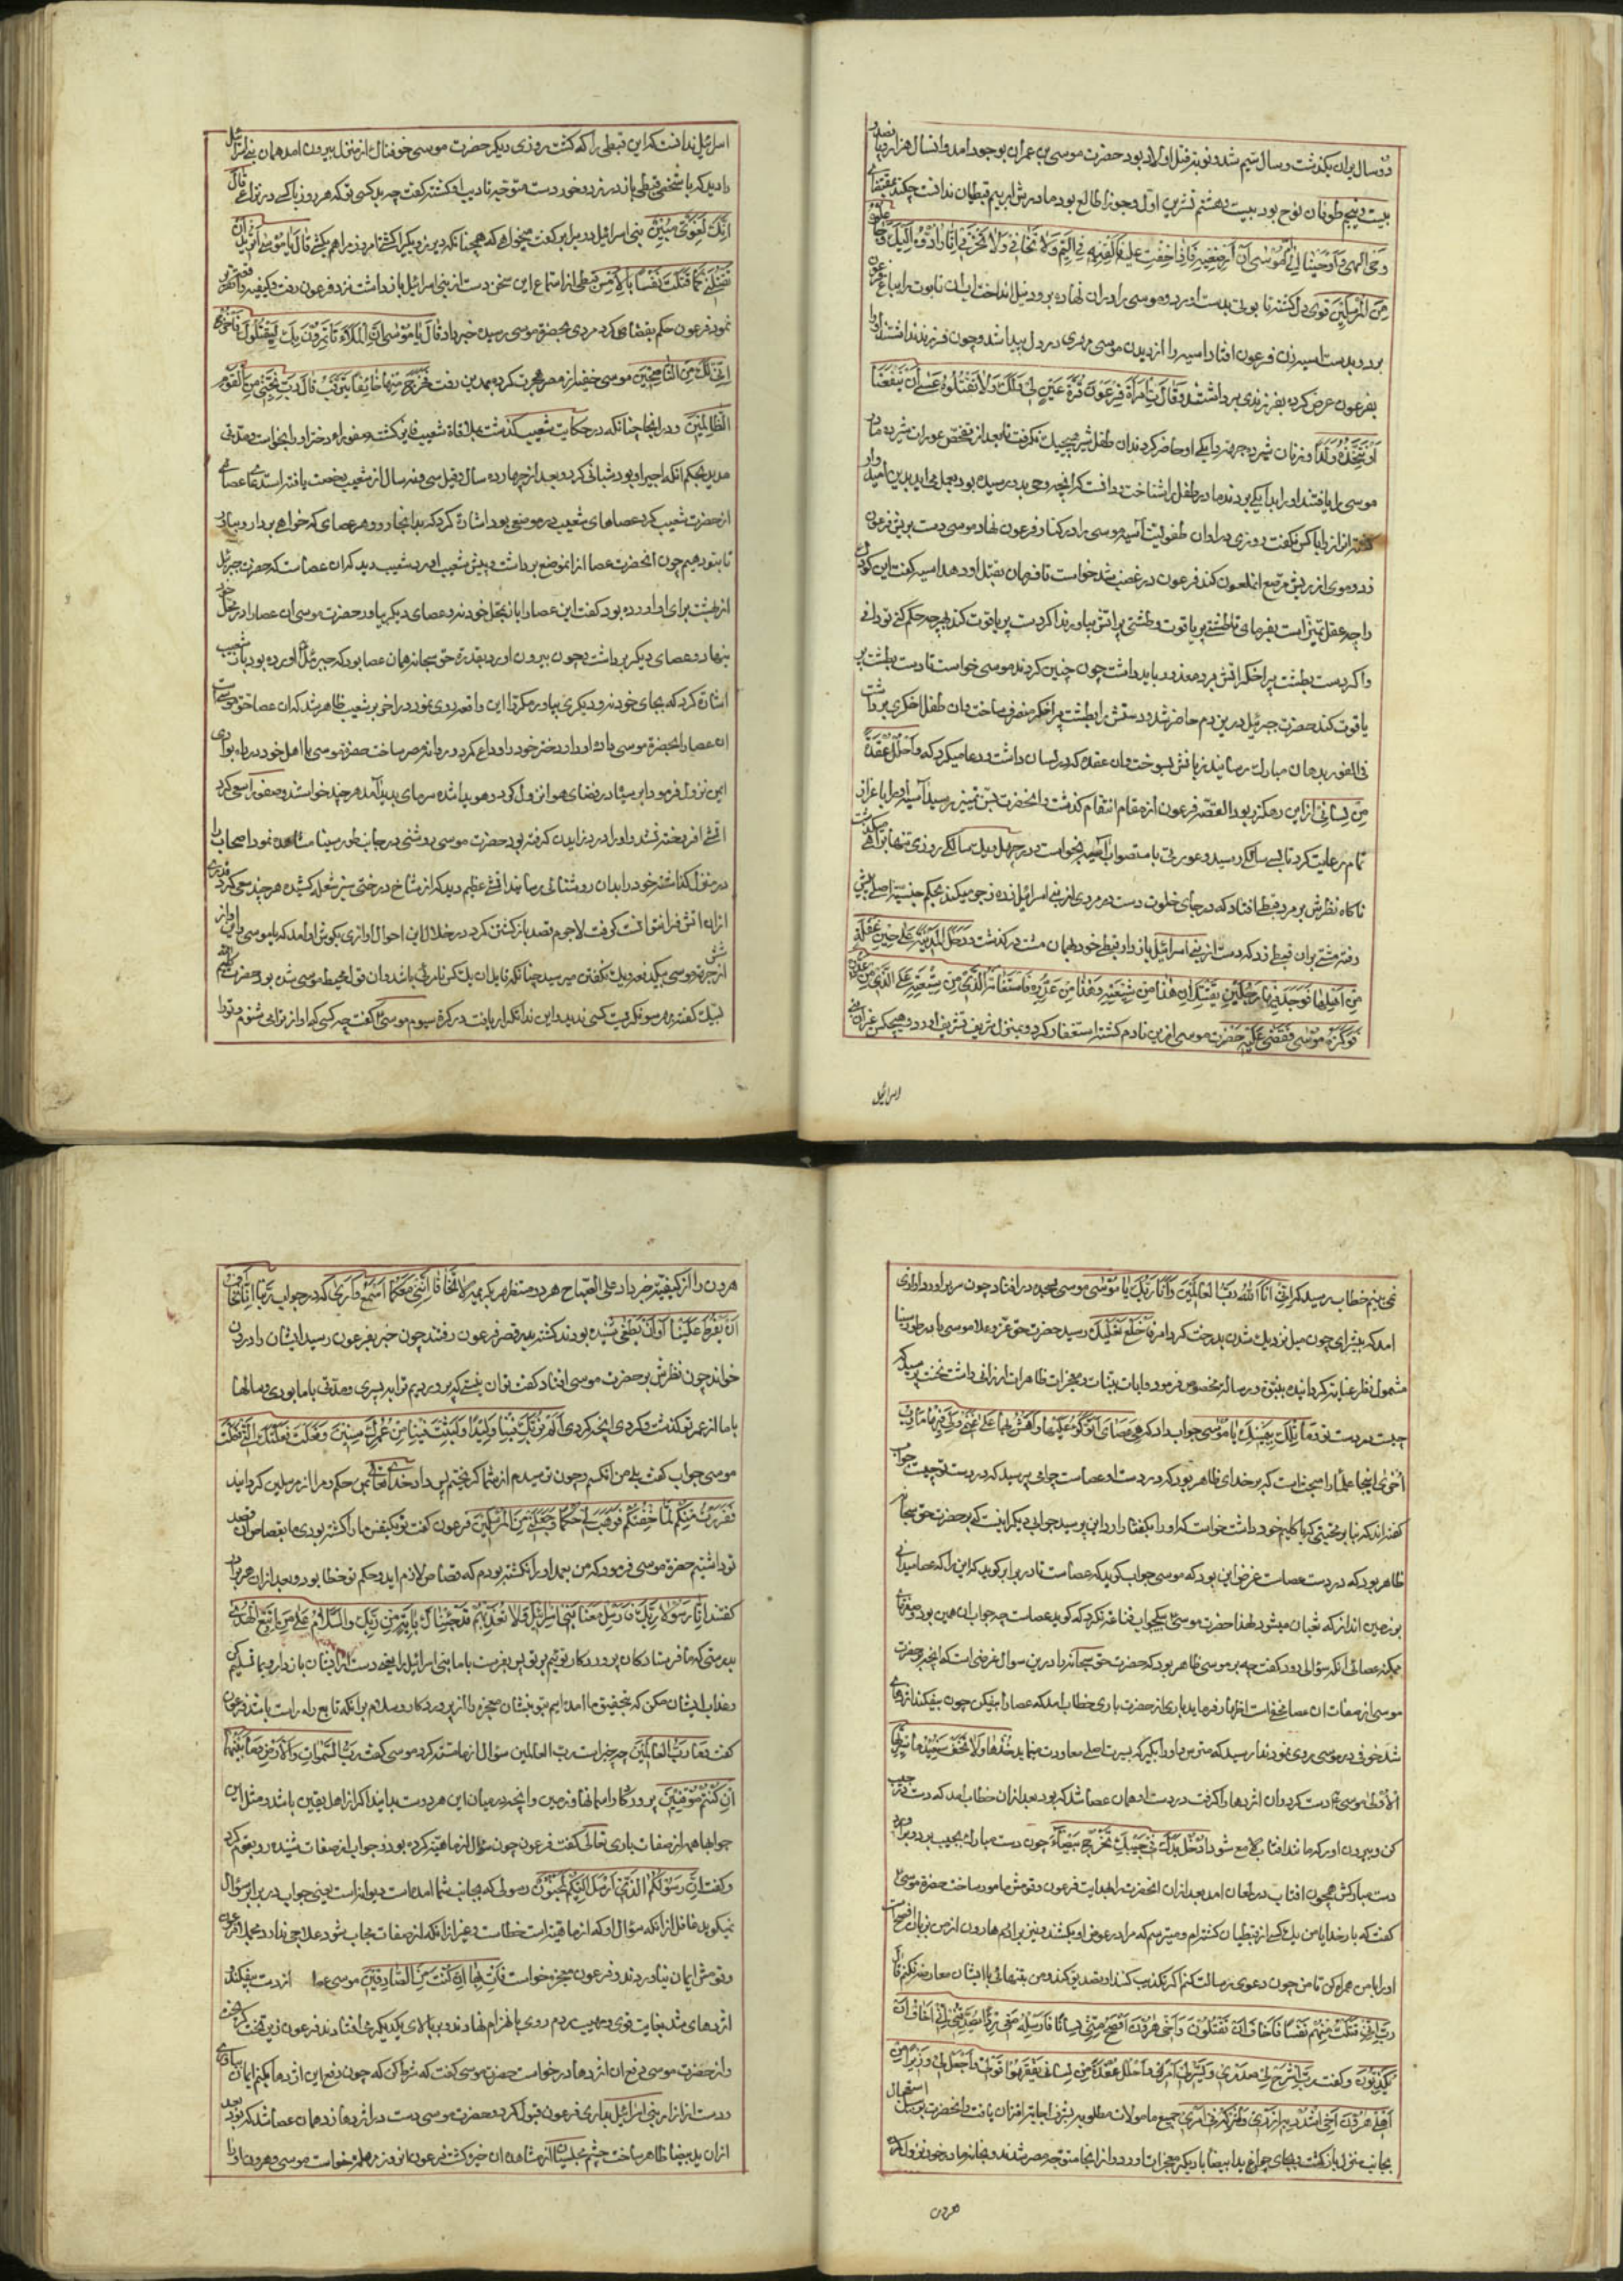 دو سال بران بگذشت و سال سیم شد و نوبت قتل اولاد بود حضرت موسی بن عمران بوجود امد و انسال هزار و پانصد و
بیست و پنج طوفان نوح بود بیست و هشتم تشرین اول و جوزا طالع بود مادرش از بیم قبطیان ندانست چکند بمقتضای
وحی الهی و اوحینا الی ام موسی ان ارضعیه فاذا خفت علیه فالقیه فی الیم ولا تخافی ولا تحزنی انا رادوه الیک وجاعلوه
من المرسلین قوی دل گشته تابوتی بدست اورد و موسی را دران نهاده برود نیل انداخت ایشان تابوت را بباغ فرعون
برد و بدست اسیه زن فرعون افتاد اسیه را از دیدن موسی مهری در دل پیدا شد و چون فرزند نداشتند او را
بفرعون عرض کرده بفرزندی برداشتند وقالت امرأة فرعون قرة عین لی ولک ولا تقتلوه عسی ان ینفعنا
او نتخذه ولدا و زنان شیرده جهة دایگی او حاضر کردند ان طفل شیر هیچیک نگرفت تا بعد از تفحص عوران شیرده مادر
موسی را یافتند او را بدایگی بردند مادر طفل را شناخت و دانست که انچه وحی بدو رسیده بود بعمل می اید بدین امیدوار
گشته راز را با کس نگفت روزی در اوان طفولیت آسیه موسی را در کنار فرعون نهاد موسی دست بریش فرعون
زد و موی از ریش مرصع انملعون کند فرعون در غضب شد خواست تا فرمان بقتل او دهد اسیه گفت این کودک
را چه عقل تمیز است بفرمای تا طشتی پر یاقوت و طشتی پر اتش بیاورند اگر دست بر یاقوت کند هر چه حکم کنی تو دانی
و اگر دست بطشت پر اخگر اتش برد معذور باید داشت چون چنین کردند موسی خواست تا دست بطشت پر
یاقوت کند حضرت جبرئیل درین دم حاضر شد و دستش را بطشت پر اخگر منصرف ساخت و ان طفل اخگری برداشت
فی الفور بدهان مبارک رسانید زبانش بسوخت و ان عقده که در لسان داشت و دعا میکرد که واحلل عقدة
من لسانی ازین رهگذر بود القصه فرعون از مقام انتقام گذشت و انحضرت بسن تمیز رسید آسیه او را باعزاز
تمام رعایت کرد تا بسی سالگی رسید و عورتی باستصواب اسیه بخواست و در چهل و یک سالگی روزی تنها براهی میگذشت
ناگاه نظرش بر مرد قبطی افتاد که در جای خلوت دست در مردی از بنی اسرائیل زده زجر میکند بحکم جنسیت اصلی پیش
رفته مشتی بران قبطی زد که دست از بنی اسرائیل باز دارد قبطی خود بهمان مشت درگذشت ودخل المدینة علی حین غفلة
من اهلها فوجد فیها رجلین یقتتلان هذا من شیعته وهذا من عدوه فاستغاثه الذی من شیعته علی الذی من عدوه
فوکزه موسی فقضی علیه حضرت موسی ازین نادم گشته استغفار کرد و بمنزل شریف تشریف اورد و هیچکس غیر از بنی
اسرائیل
اسرائیل ندانست که این قبطی را که کشت روزی دیگر حضرت موسی خوفناک از منزل بیرون امد همان بنی اسرائیل
را دید که با شخصی قبطی باز در نزد و خوردست متوجه تادیب او گشته گفت چه بد کسی تو که هر روز با کسی در نزاعی قال
انک لغوی مبین بنی اسرائیل در برابر گفت میخواهی که همچنانکه دیروز دیگر را کشتی امروز مرا هم بکشی قال یا موسی اترید ان
تقتلنی کما قتلت نفسا بالامس قبطی از استماع این سخن دست از بنی اسرائیل باز داشت نزد فرعون رفت و کیفیة واقعه تقریر
نمود فرعون حکم بقصاص کرد مردی بحضرة موسی رسیده خبر داد قال یا موسی ان الملاء یأتمرون بک لیقتلوک فاخرج
انی لک من الناصحین موسی خفیه از مصر هجرت کرده بمدین رفت فخرج منها خائفا یترقب قال رب نجنی من القوم
الظالمین و در اینجا چنانکه در حکایت شعیب گذشت بملاقاة شعیب فایز گشت و صفورا دختر او را بخواست و مدتی
مدید بحکم انکه اجیر او بود شبانی کرد و بعد از چهارده سال و قیل سی و نه سال از شعیب رخصت یافته استدعای عصائی
از حضرت شعیب کرد عصاهای شعیب در موضعی بود اشارة کرد که بدانجا رو و هر عصای که خواهی بردار و بیاور
تا بتو دهیم چون انحضرت عصا از انموضع برداشت و پیش شعیب اورد شعیب دید که ان عصاست که حضرت جبرئیل
از بهشت برای او اورده بود گفت این عصا را باز بمحل خود نه و عصای دیگر بیاور حضرت موسی ان عصا را در محل خود
بنهاد و عصای دیگر برداشت چون بیرون اورد بقدرة حق سبحانه همان عصا بود که جبرئیل اورده بود باز شعیب
اشاره کرد که بجای خود نه و دیگری بیاور مکرر این واقعه روی نمود در اخر بر شعیب ظاهر شد که ان عصا حق موسی است
ان عصا را بحضرة موسی داد او را و دختر خود را وداع کرد و روانه مصر ساخت حضرة موسی با اهل خود در راه بوادی
ایمن نزول فرمود ابر سیاه در فضای هوا نزول کرد و هوید اشده سرمای پدید آمد هر چند خواستند و صفورا سعی کرد
اتش افروخته نشد و او را درد زاییدن گرفته بود حضرت موسی روشنی در جانب طور سینا مشاهده نمود اصحاب را
در منزل گذاشته خود را بدان روشنائی رسانید اتشی عظیم دید که از شاخ درختی سبز شعله کشیده هر چند سعی کرد قدری
ازان اتش فرا نتوانست گرفت لاجرم قصد بازگشتن کرد در خلال این احوال اوازی بگوش او امد که یا موسی و این اواز
نمی بینم خطاب رسید که انی انا الله رب العالمین وانا ربک یا موسی موسی بسجده در افتاد چون سر براورد اوازی
امد که پیشترای چون میل نزدیک شدن بدرخت کرد امر فاخلع نعلیک رسید حضرت حق عز و علا موسی را در طور سینا
مشمول نظر عنایت گردانیده بنبوت و رسالة مخصوص فرمود و ایات بینات و معجزات ظاهرات ارزانی داشت نخست پرسید که
چیست در دست تو وما تلک بیمینک یا موسی جواب داد که هی عصای اتوکؤ علیها واهش بها علی غنمی ولی فیها مآرب
اخری اینجا علما را سخن است که بر خدای ظاهر بود که در دست او عصاست چرا می پرسید که در دست تو چیست جواب
گفته اند که بنا بر محبتی که با کلیم خود داشت خواست که او را بگفتار اورد این پرسید جوابی دیگر اینست که بر حضرت حق سبحانه
ظاهر بود که در دست عصاست غرض این بود که موسی جواب گوید که عصاست تا در برابر گوید که این را که عصا میدانی
بر زمین انداز که ثعبان میشود لهذا حضرت موسی بیکجواب قناعت نکرد که گوید عصاست چه جواب ان همین بود
موسی از صفات ان عصا نخواست اظهار فرماید باری از حضرت باری خطاب امد که عصا را بیفکن چون بیفکند اژدهای
شد خوفی در موسی روی نمود ندا رسید که مترس و او را بگیر که بسیرت اصلی معاودت مینماید خذها ولا تخف سنعیدها سیرتها
الاولی موسی دست کرد و ان اژدها را گرفت در دست او همان عصا شد که بود بعد ازان خطاب امد که دست در جیب
کن و بیرون اور که مانند افتاب لامع شود ادخل یدک فی جیبک تخرج بیضاء چون دست مبارک بجیب برد و براورد
دست مبارکش همچون افتاب در لمعان امد بعد ازان انحضرت را بهدایت فرعون و قومش مامور ساخت حضرة موسی
گفت که بار خدایا من یک کسی از قبطیان کشته ام و میترسم که مرا در عوض او بکشند و نیز برادرم هارون از من زبان افصح است
او را با من همراه کن تا من چون دعوی رسالت کنم اگر تکذیب کنند او تصدیق کند و من بتنهائی با ایشان معارضه نکنم قال
رب انی قتلت منهم نفسا فاخاف ان یقتلون واخی هرون افصح منی لسانا فارسله معی ردءا یصدقنی انی اخاف ان
یکذبون و گفت رب اشرح لی صدری ویسر لی امری واحلل عقدة من لسانی یفقهوا قولی واجعل لی وزیرا من
اهلی هرون اخی اشدد به ازری واشرکه فی امری جمیع مامولات مطلوبه بشرف اجابة اقتران یافت و انحضرت بر سبیل استعجال
بجانب منزل بازگشت و بجای چراغ ید بیضا با دیگر معجزات اورد و از انجا متوجه مصر شدند و بخانه مادر خود نزول کرده
هرون
هرون را از کیفیة خبر داد علی الصباح هر دو مستظهر بکریمه لا تخافا اننی معکما اسمع واری که در جواب ربنا اننا نخاف
ان یفرط علینا او ان یطغی شنیده بودند گشته بدر قصر فرعون رفتند چون خبر بفرعون رسید ایشان را درون
خواند چون نظرش بر حضرت موسی افتاد گفت تو ان نیستی که پروردیم ترا بدین پسری و مدتی با ما بودی و سالها
با ما از عمر تو گذشت و کردی انچه کردی الم نربک فینا ولیدا ولبثت فینا من عمرک سنین وفعلت فعلتک التی فعلت
موسی جواب گفت بلی من انکسم و چون ترسیدم از شما گریختم پس داد خدای تعالی بمن حکم و مرا از مرسلین گردانید
ففررت منکم لما خفتکم فوهب لی ربی حکما وجعلنی من المرسلین فرعون گفت تو یکنفس ما را کشته بودی ما بقصاص قصد
تو داشتیم حضرة موسی فرمود که من بعمد او را نکشته بودم که قصاص لازم اید و حکم تو خطا بود و بعد ازان هر دو
گفتند انا رسولا ربک فارسل معنا بنی اسرائیل ولا تعذبهم قد جئناک بایة من ربک والسلام علی من اتبع الهدی
بدرستی که ما فرستادگان پروردگار توئیم بر تو پس بفرست با ما بنی اسرائیل را یعنی دست از ایشان باز دار و بما تسلیم کن
و عذاب ایشان مکن که بتحقیق ما امده ایم بتو بنشان معجزه را از پروردگار و سلام برانکه تابع راه راست باشد فرعون
گفت وما رب العالمین چه چیز است رب العالمین سؤال از ماهیت کرد موسی گفت رب السموات والارض وما بینهما
ان کنتم موقنین پروردگار اسمانها و زمین و انچه در میان این هر دوست بدانید اگر از اهل یقین باشید و مثل این
جوابها همه از صفات باری تعالی گفت فرعون چون سؤال از ماهیة کرده بود و جواب از صفات شنیده رو بقوم کرد
و گفت ان رسولکم الذی ارسل الیکم لمجنون رسولی که بجانب شما امده است دیوانه است یعنی جواب در برابر سؤال
نمیگوید غافل ازانکه سؤال او که از ماهیة است خطاست و غیر ازانکه از صفات مجاب شود علاجی ندارد مجملا فرعون
و قومش ایمان نیاوردند و فرعون معجزه خواست فأت بها ان کنت من الصادقین موسی عصا از دست بیفکند
اژدهای شد بغایت قوی و مهیب مردم روی بانهزام نهادند و بر بالای یکدیگر می افتادند فرعون زیر تخت گریخت
و از حضرت موسی دفع ان اژدها درخواست حضرت موسی گفت که شرط کن که چون دفع این اژدها بکنم ایمان بیاوری
و دست از ازار بنی اسرائیل بداری فرعون قبول کرد و حضرت موسی دست در اژدها زد همان عصا شد که بود بعد
ازان ید بیضا ظاهر ساخت چشم مجلسیان از مشاهده ان خیره گشت فرعون انروز مهلت خواست موسی و هرون او را